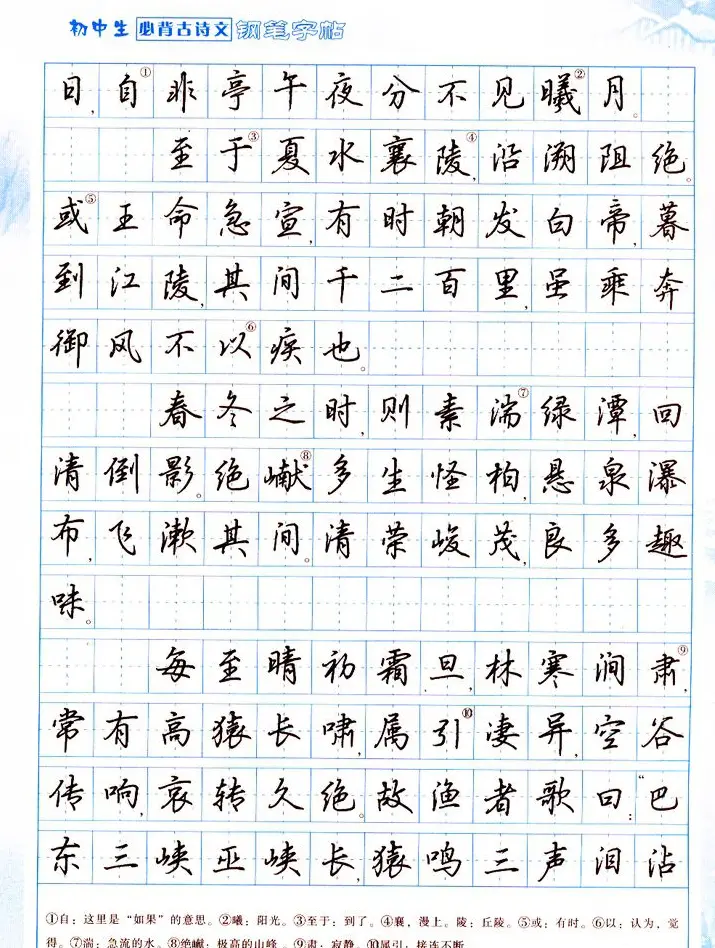 初中生 必背古诗文 钢笔字帖
日,自①非亭午夜分不见曦②月。
至于③夏水襄陵④,沿溯阻绝。
或⑤王命急宣,有时朝发白帝,暮
到江陵,其间千二百里,虽乘奔
御风不以⑥疾也。
春冬之时,则素湍⑦绿潭,回
清倒影。绝巘⑧多生怪柏,悬泉瀑
布,飞漱其间。清荣峻茂,良多趣
味。
每至晴初霜旦,林寒涧肃⑨,
常有高猿长啸,属引⑩凄异,空谷
传响,哀转久绝。故渔者歌曰:“巴
东三峡巫峡长,猿鸣三声泪沾
①自:这里是“如果”的意思。②曦:阳光。③至于:到了。④襄,漫上。陵:丘陵。⑤或:有时。⑥以:认为,觉
得。⑦湍:急流的水。⑧绝巘:极高的山峰。⑨肃:寂静。⑩属引:接连不断